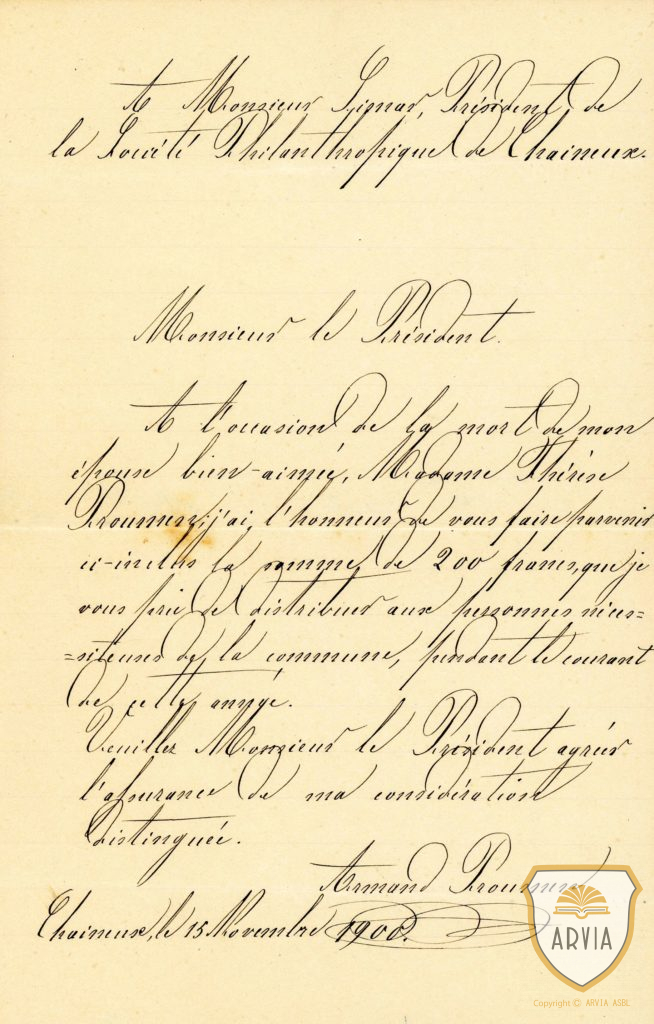 A Monsieur Simar, Président de
la Société Philanthropique de Chaineux.
Monsieur le Président.
A l'occasion de la mort de mon
épouse bien-aimée, Madame Thérèse
Proumen; j'ai l'honneur de vous faire parvenir
ci-inclus la somme de 200 francs, que je
vous prie de distribuer aux personnes néces=
=siteuses de la commune, pendant le courant
de cette année.
Veuillez Monsieur le Président agréer
l'assurance de ma considération
distinguée.
Armand Proumen
Chaineux, le 15 Novembre 1900.
ARVIA
Copyright © ARVIA ASBL